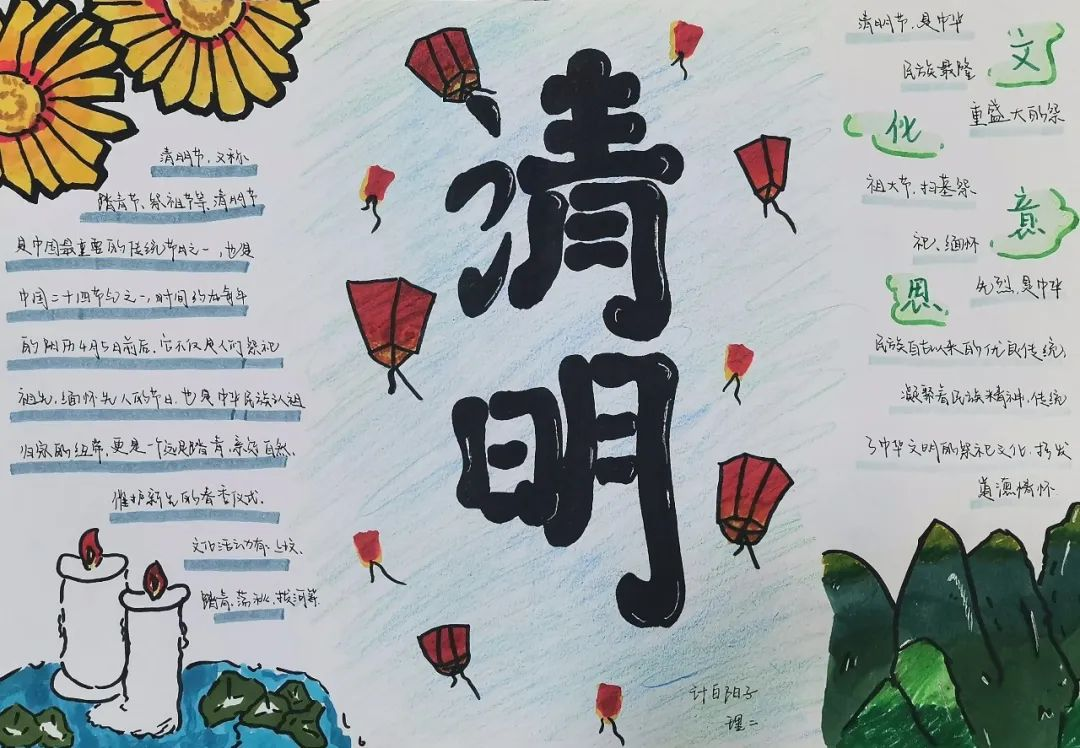 清明
清明节,又称
踏青节、祭祖节等,清明节
是中国最重要的传统节日之一,也是
中国二十四节气之一,时间约在每年
的阳历4月5日前后。它不仅是人们祭祀
祖先,缅怀先人的节日,也是中华民族认祖
归宗的纽带,更是一个远足踏青,亲近自然、
催护新生的春季仪式。
文化活动有:上坟、
踏青、荡秋、拔河等
文化意思
清明节,是中华
民族最隆
重盛大的祭
祖大节,扫墓祭
祀、缅怀
先烈,是中华
民族自古以来的优良传统,
凝聚着民族精神,传统
了中华文明的祭祀文化,抒发
道德情怀.
理二